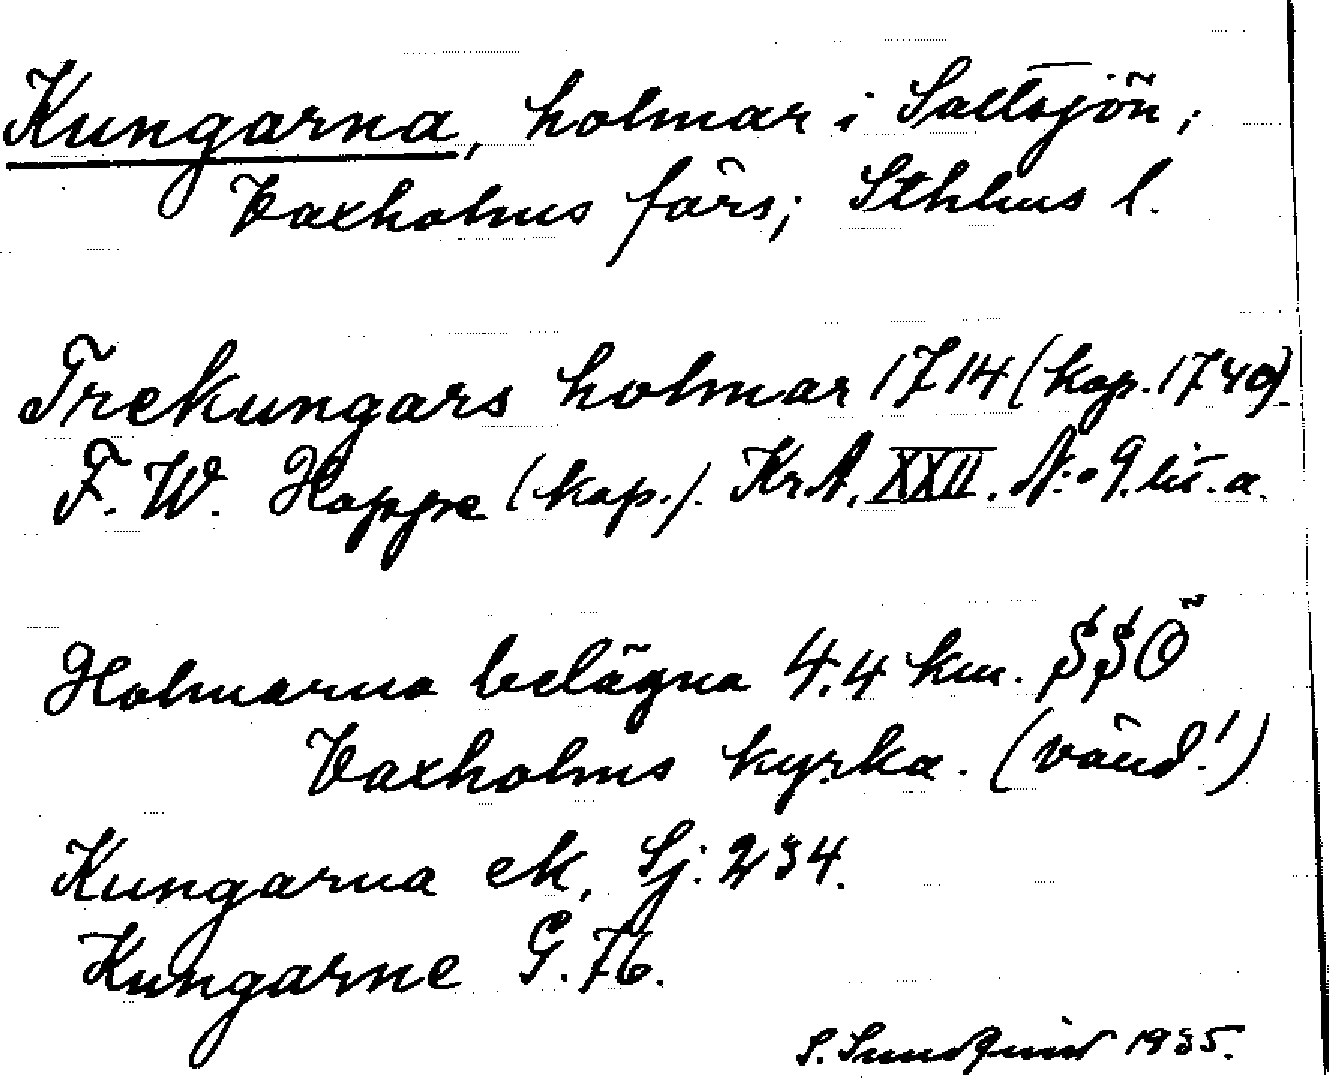 Kungarna, holmar i Saltsjön,
Vaxholms förs; Sthlms l.
Trekungars holmar 1714 (kop. 1740).
F. W. Hoppe (kop.). Kr.A. XXII. N:o 9. lit. a.
Holmarna belägna 4.4 km. SSÖ
Vaxholms kyrka. (vänd!)
Kungarna ek. Sj: 234.
Kungarne G. 76.
S. Sundqvist 1935.